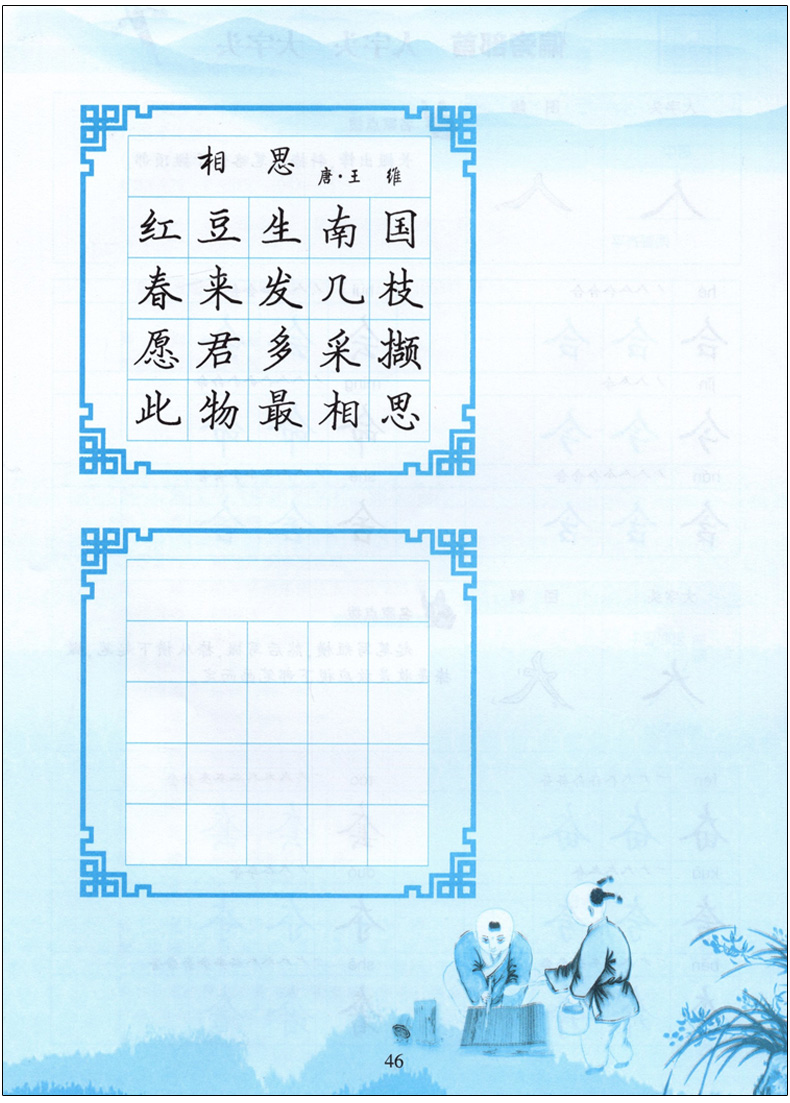 相思 唐·王维
红豆生南国
春来发几枝
愿君多采撷
此物最相思
46